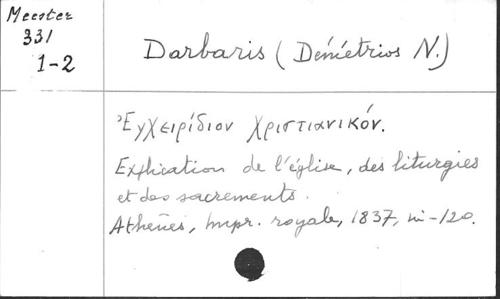 Meester
331
1-2
Darbaris (Démétrios N.)
Ἐγχειρίδιον Χριστιανικόν.
Explication de l'église, des liturgies
et des sacrements.
Athènes, Impr. royale, 1837, in-12o.